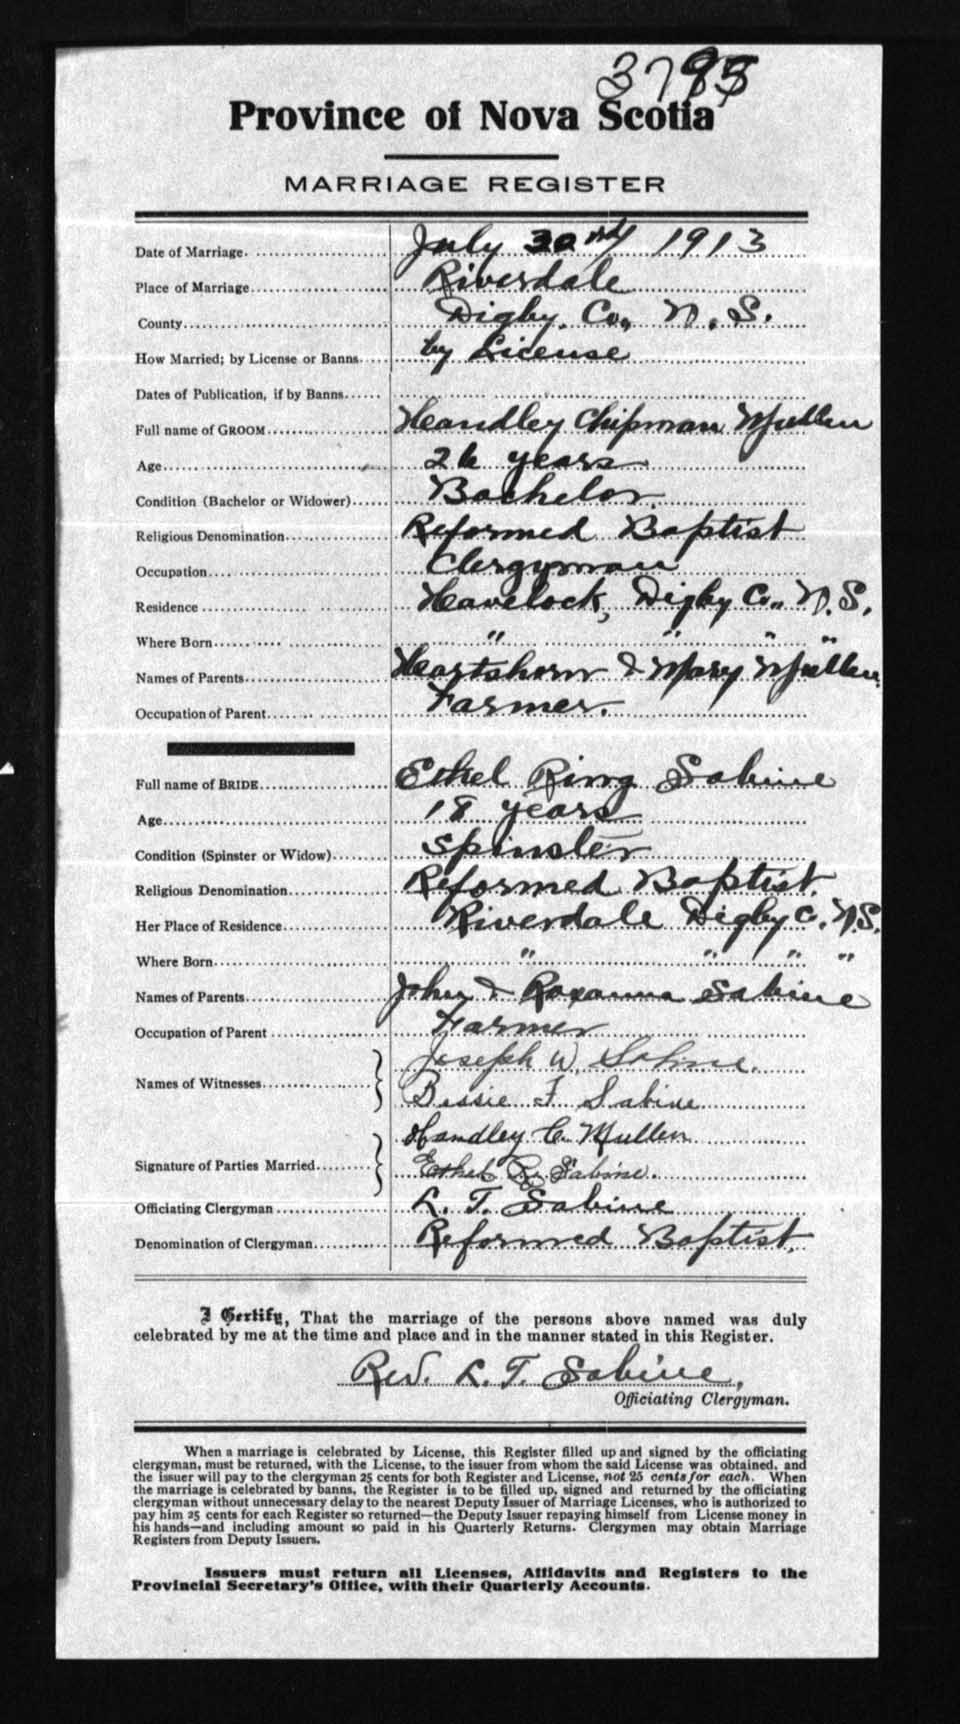 Province of Nova Scotia
MARRIAGE REGISTER
Date of Marriage. July 1913
Place of Marriage Riverdale
County Digby. Co., N. S.
How Married; by License or Banns by License
Dates of Publication, if by Banns
Full name of GROOM Handley Chipman Mullen
Age 26 years
Condition (Bachelor or Widower) Bachelor.
Religious Denomination Reformed Baptist
Occupation Clergyman
Residence Havelock, Digby Co., N. S.
Where Born " " " "
Names of Parents Heartshorn & Mary Mullen
Occupation of Parent Farmer.
Full name of BRIDE Ethel Ring Sabine
Age 18 years
Condition (Spinster or Widow) Spinster
Religious Denomination Reformed Baptist.
Her Place of Residence Riverdale Digby C. N.S.
Where Born " " " "
Names of Parents John & Roxanna Sabine
Occupation of Parent Farmer
Names of Witnesses Joseph W. Sabine.
Bessie F Sabine
Handley C. Mullen
Signature of Parties Married Ethel R. Sabine.
Officiating Clergyman L. T. Sabine
Denomination of Clergyman Reformed Baptist.
I Certify, That the marriage of the persons above named was duly
celebrated by me at the time and place and in the manner stated in this Register.
Rev. L. T. Sabine,
Officiating Clergyman.
When a marriage is celebrated by License, this Register filled up and signed by the officiating
clergyman, must be returned, with the License, to the issuer from whom the said License was obtained, and
the issuer will pay to the clergyman 25 cents for both Register and License, not 25 cents for each. When
the marriage is celebrated by banns, the Register is to be filled up, signed and returned by the officiating
clergyman without unnecessary delay to the nearest Deputy Issuer of Marriage Licenses, who is authorized to
pay him 25 cents for each Register so returned—the Deputy Issuer repaying himself from License money in
his hands—and including amount so paid in his Quarterly Returns. Clergymen may obtain Marriage
Registers from Deputy Issuers.
Issuers must return all Licenses, Affidavits and Registers to the
Provincial Secretary's Office, with their Quarterly Accounts.